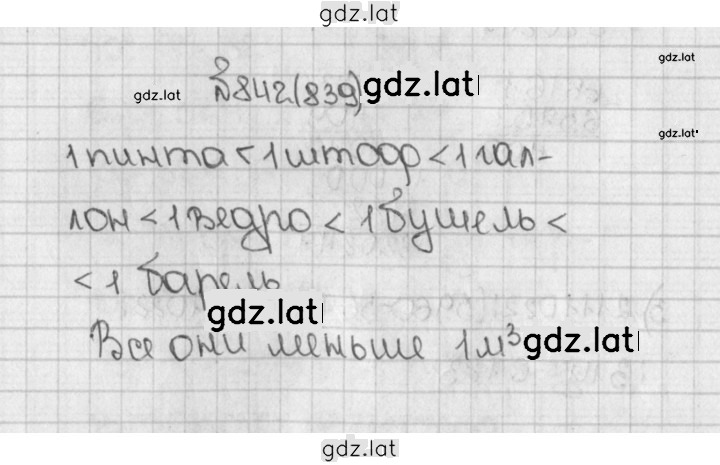 gdz.lat
gdz.lat
gdz.lat №842.(839) gdz.lat
gdz.lat
1 пинта < 1 штоор < 1 гал-
лон < 1 ведро < 1 бушель <
< 1 барель
gdz.lat
Все они меньше 1 м³ gdz.lat
gdz.lat